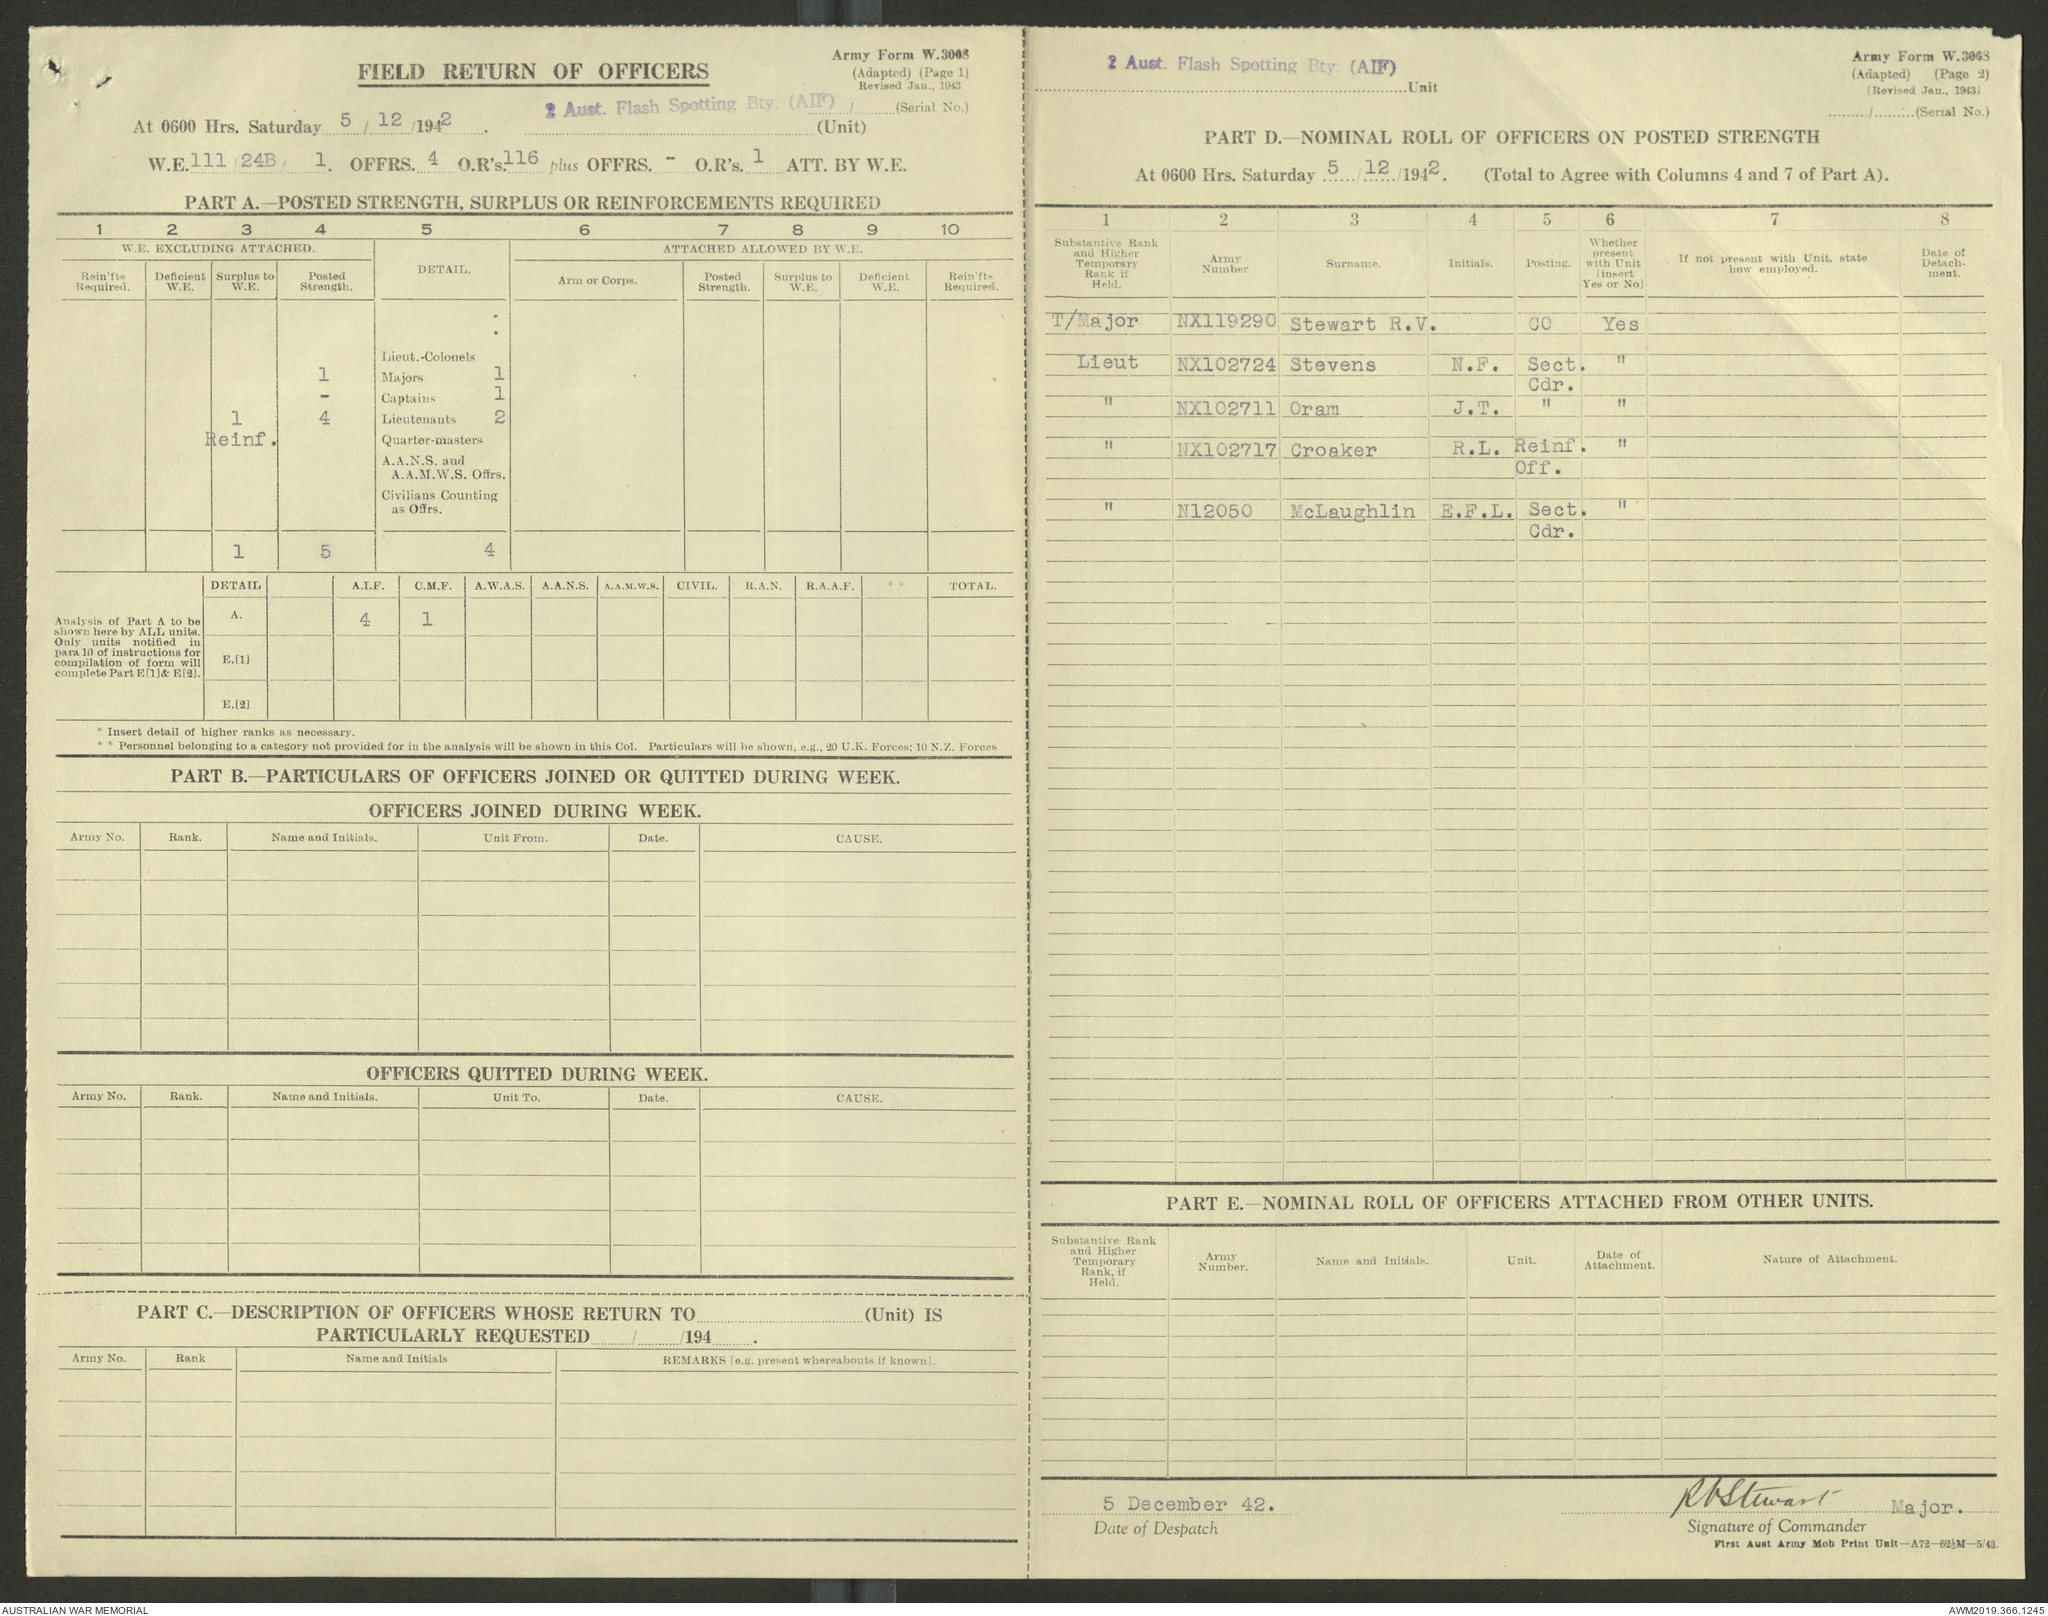 Army Form W.3008
FIELD RETURN OF OFFICERS
(Adapted) (Page 1)
Revised Jan., 1943
2 Aust. Flash Spotting Bty. (AIF) / (Serial No.)
At 0600 Hrs. Saturday 5 / 12 /1942 . (Unit)
W.E. 111 / 24B / 1. OFFRS. 4 O.R's. 116 plus OFFRS. - O.R's. 1 ATT. BY W.E.
PART A.—POSTED STRENGTH, SURPLUS OR REINFORCEMENTS REQUIRED
1 2 3 4 5 6 7 8 9 10
W.E. EXCLUDING ATTACHED. DETAIL. ATTACHED ALLOWED BY W.E.
Rein'fts Required. Deficient W.E. Surplus to W.E. Posted Strength. Arm or Corps. Posted Strength. Surplus to W.E. Deficient W.E. Rein'fts Required.
Lieut.-Colonels
1 Majors 1
- Captains 1
1 4 Lieutenants 2
Reinf. Quarter-masters
A.A.N.S. and
A.A.M.W.S. Offrs.
Civilians Counting
as Offrs.
1 5 4
DETAIL A.I.F. C.M.F. A.W.A.S. A.A.N.S. A.A.M.W.S. CIVIL. R.A.N. R.A.A.F. * * TOTAL.
A. 4 1
Analysis of Part A to be
shown here by ALL units.
Only units notified in
para 10 of instructions for
compilation of form will
complete Part E[1]& E[2].
E.[1]
E.[2]
* Insert detail of higher ranks as necessary.
* * Personnel belonging to a category not provided for in the analysis will be shown in this Col. Particulars will be shown, e.g., 20 U.K. Forces; 10 N.Z. Forces
PART B.—PARTICULARS OF OFFICERS JOINED OR QUITTED DURING WEEK.
OFFICERS JOINED DURING WEEK.
Army No. Rank. Name and Initials. Unit From. Date. CAUSE.
OFFICERS QUITTED DURING WEEK.
Army No. Rank. Name and Initials. Unit To. Date. CAUSE.
PART C.—DESCRIPTION OF OFFICERS WHOSE RETURN TO (Unit) IS
PARTICULARLY REQUESTED / /194 .
Army No. Rank Name and Initials REMARKS [e.g. present whereabouts if known].
2 Aust. Flash Spotting Bty. (AIF) Unit
Army Form W.3008
(Adapted) (Page 2)
[Revised Jan., 1943]
/ (Serial No.)
PART D.—NOMINAL ROLL OF OFFICERS ON POSTED STRENGTH
At 0600 Hrs. Saturday 5 / 12 /1942. (Total to Agree with Columns 4 and 7 of Part A).
1 2 3 4 5 6 7 8
Substantive Rank and Higher Temporary Rank if Held. Army Number Surname. Initials. Posting. Whether present with Unit [insert Yes or No] If not present with Unit, state how employed. Date of Detach-ment.
T/Major NX119290 Stewart R.V. CO Yes
Lieut NX102724 Stevens N.F. Sect. "
Cdr.
" NX102711 Oram J.T. " "
" NX102717 Croaker R.L. Reinf. "
Off.
" N12050 McLaughlin E.F.L. Sect. "
Cdr.
PART E.—NOMINAL ROLL OF OFFICERS ATTACHED FROM OTHER UNITS.
Substantive Rank and Higher Temporary Rank, if Held. Army Number. Name and Initials. Unit. Date of Attachment. Nature of Attachment.
5 December 42. RVStewart Major.
Date of Despatch Signature of Commander
First Aust Army Mob Print Unit—A72—62½M—5/43.
AUSTRALIAN WAR MEMORIAL AWM2019.366.1245